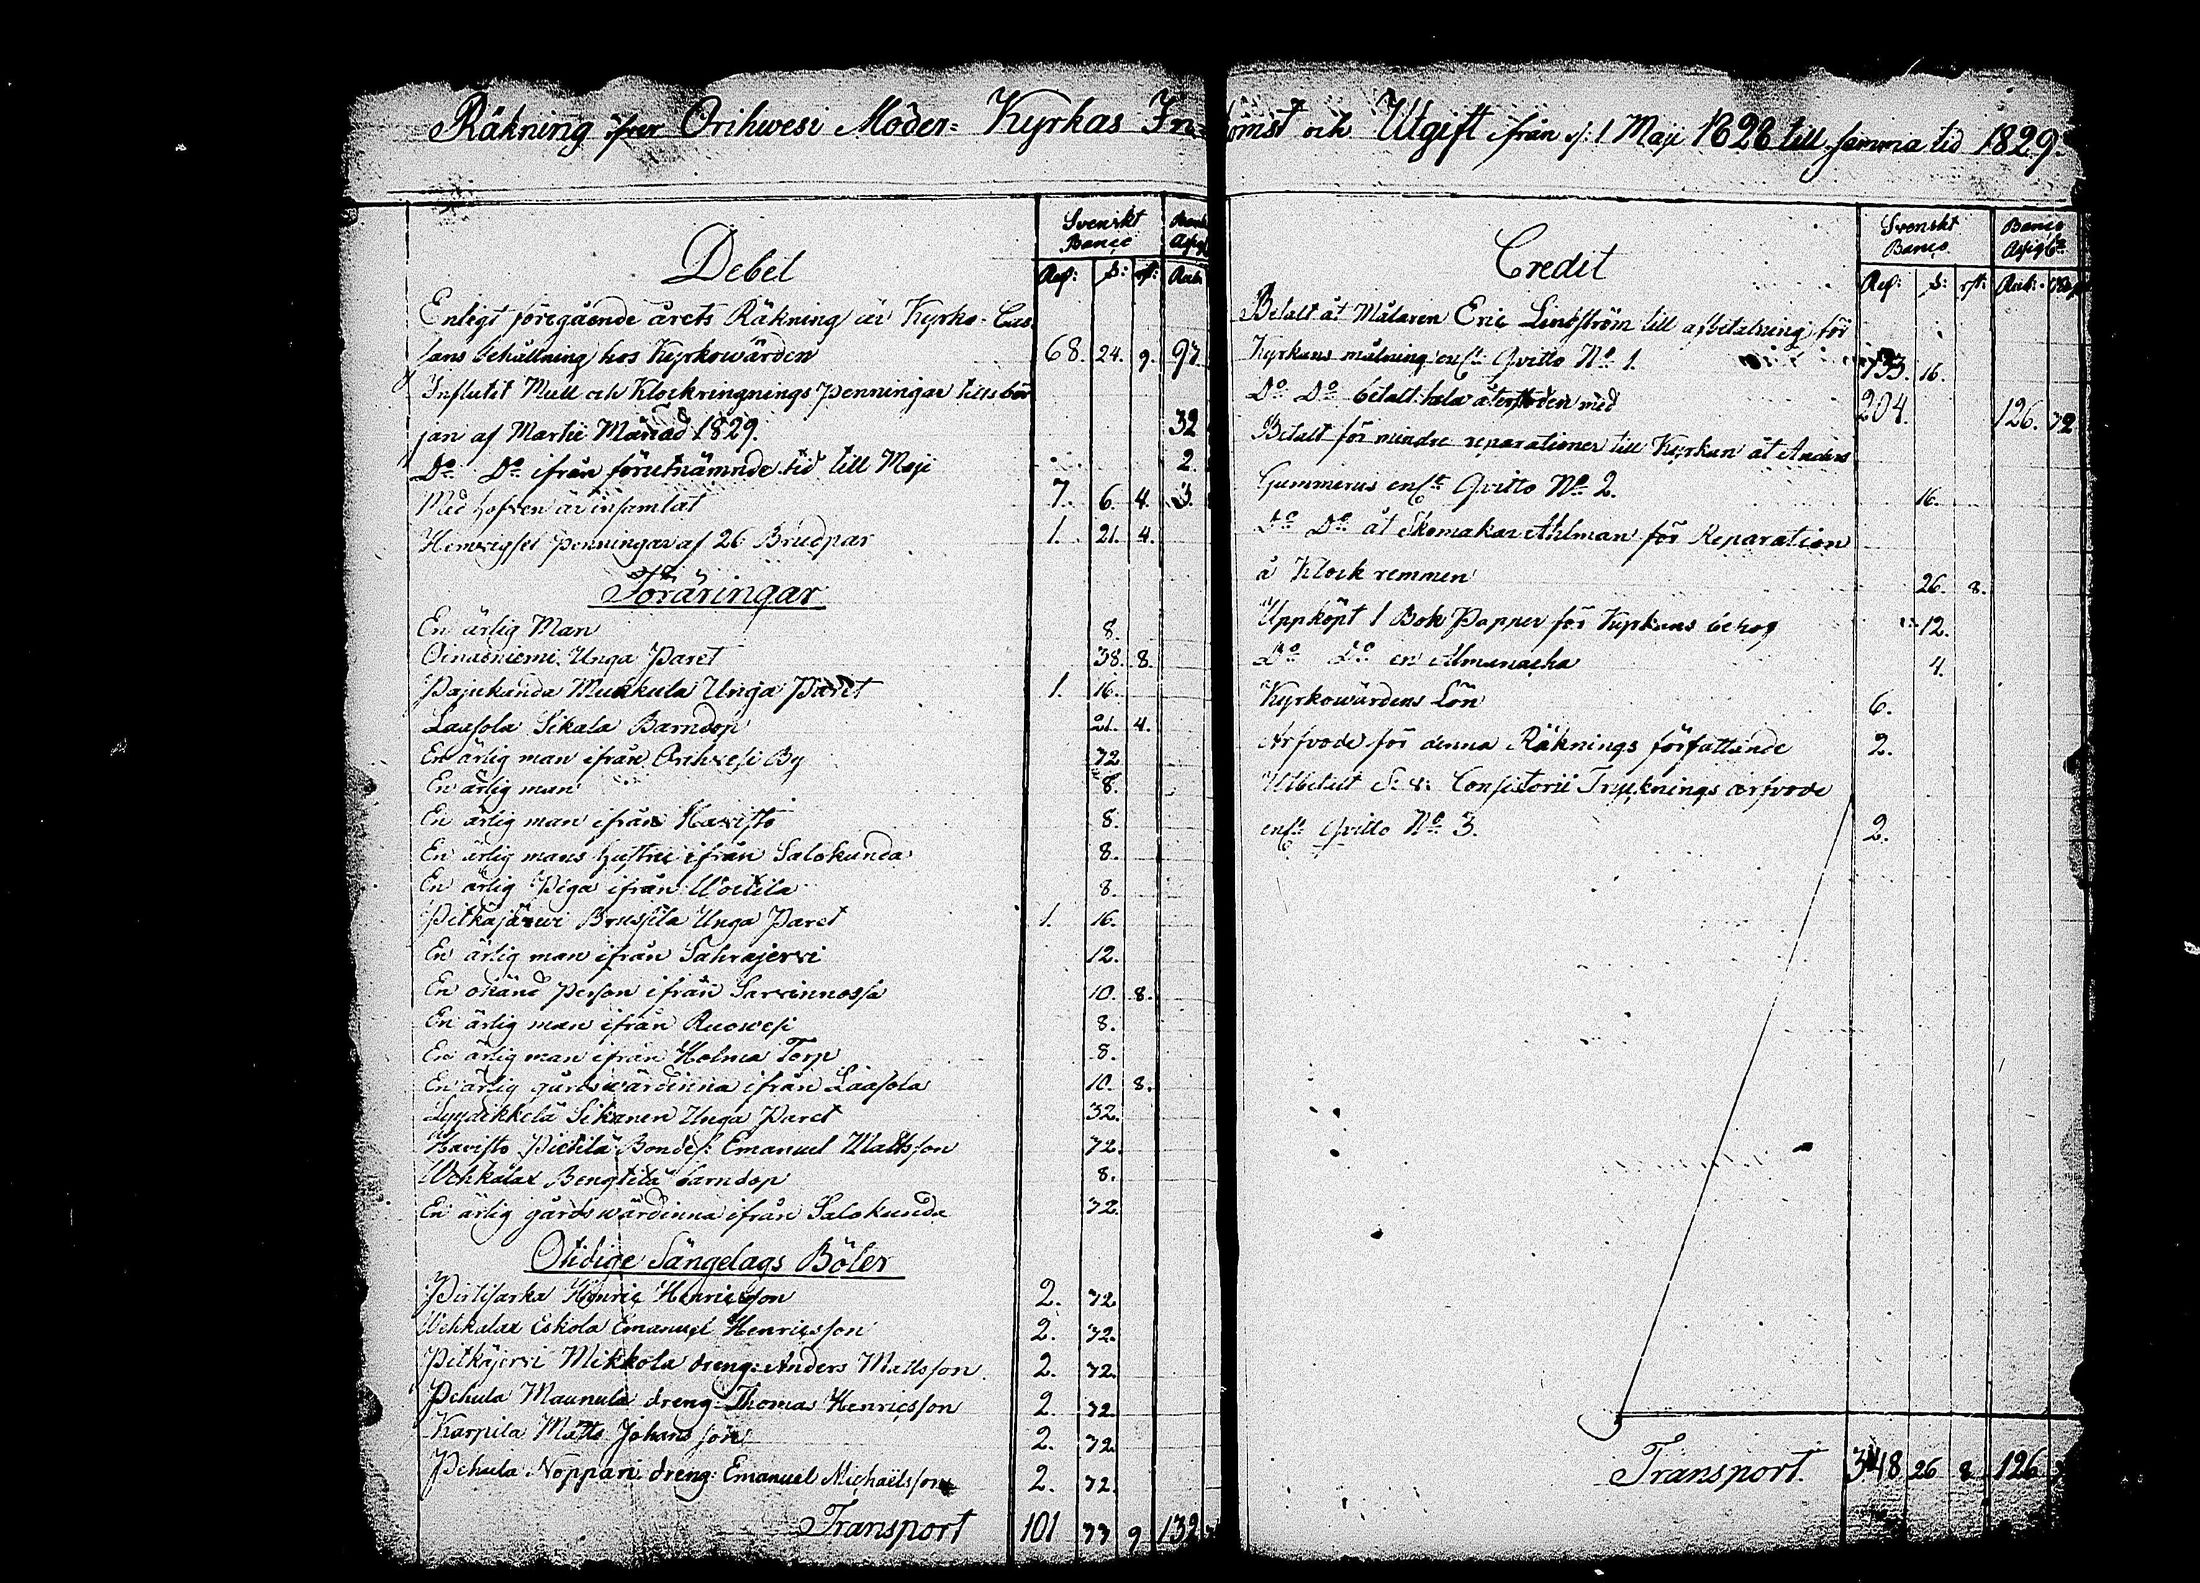 Räkning öfver Orihwesi Moder- Kyrkas In-
Debet
Svenskt Banço
Rd: s: rst: Rub:
Enligt föregående årets Räkning är Kyrko- Cas
sans behållning hos Kyrkowärden 68. 24. 9. 97.
Influtit Mull och Klockringnings Penningar tills bör
jan af Martii Månad 1829. 32
Do Do ifrån förutnämnde tid till Maji 2.
Med Hofven är insamlat 7. 6. 4. 3.
Hemvigsel Penningar af 26 Brudpar 1. 21. 4.
Föräringar
En ärlig Man 8.
Oinasniemi Unga Paret 38. 8.
Pajukanda Mukkula Unga Paret 1. 16.
Laasola Sikala Barndop 21. 4.
En ärlig man ifrån Orihvesi By 32
En ärlig man 8.
En ärlig man ifrån Havisto 8.
En ärlig mans hustru ifrån Salokunda 8.
En ärlig Piga ifrån Uotila 8.
Pitkäjärwi Brusila Unga Paret 1. 16.
En ärlig man ifrån Sahrajervi 12.
En okänd Person ifrån Sarvinnossa 10. 8.
En ärlig man ifrån Ruowesi 8.
En ärlig man ifrån Holma Torp 8.
En ärlig gårdswärdinna ifrån Laasola 10. 8.
Lyydikkelä Sikanen Unga Paret 32.
Havisto Pietilä Bondes: Emanuel Mattsson 32.
Wehkalax Bengtilä barndop 8.
En ärlig gårdswärdinna ifrån Salokunda 32.
Otidige Sängelags Böter
Pirtisarka Henric Henricsson 2. 32
Wehkalax Eskola Emanuel Henricsson 2. 32.
Pitkäjervi Mikkola dreng: Anders Mattsson. 2. 32.
Pehula Maunula dreng Thomas Henricsson 2. 32.
Karpila Matts Johansson 2. 32.
Pehula Noppari dreng: Emanuel Michaëlsson 2. 32.
Transport 101 33 9 132
komst och Utgift ifrån d: 1 Maji 1828 till samma tid 1829.
Credit
Svenskt Banço. Banço Assigter
Rd: s: rst: Rub:
Betalt åt Målaren Eric Lindström till afbetalning för
Kyrkans målning enlt Qvitto No 1. 133. 16.
Do Do betalt hela återstoden med 204. 126. 32
Betalt för mindre reparationer till Kyrkan åt Anders
Gummerus enlt Qvitto No 2. 16.
Do Do åt Skomakar Ahlman för Reparation
å Klock remmen 26. 8.
Uppköpt 1 Bok Papper för Kyrkans behof 12.
Do Do en Almanacha 4.
Kyrkowärdens Lön 6.
Arfvode för denna Räknings författande 2.
Utbetalt Consistorii Trycknings arfvode
enlt Qvitto No 3. 2.
Transport. 348 26 8 126